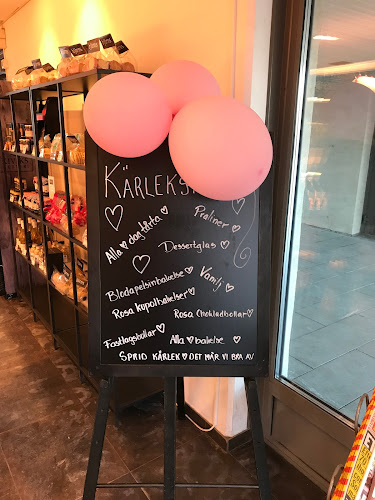 KÄRLEKS
Alla ♡ dag tårta
Praliner
Dessertglas ♡
Blodapelsinbakelse ♡
Vanilj
Rosa kupolbakelser ♡
Rosa Chokladbollar ♡
Fastlagsbullar ♡
Alla ♡ bakelse ♡
SPRID KÄRLEK ♡ DET MÅR VI BRA AV